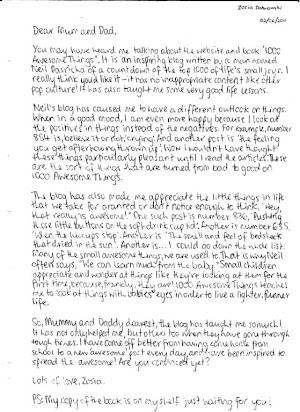 Zosia
Dear Mum and Dad,
You may have heard me talking about the website and book "1000
Awesome Things". It is an inspiring blog written by a man named
Neil Pasricha of a countdown of the top 1000 of life's small joys. I
really think you'd like it – it has no inappropriate content like other
pop culture! It has also taught me some very good lessons.
Neil's blog has caused me to have a different outlook on things.
When in a good mood, I am even more happy because I look at
the positives in things instead of the negatives. For example, number
854 is, believe it or not, crying! And another post is 'The feeling
you get after having thrown up'. Now I wouldn't have thought
these things particularly pleasant until I read the articles. These
are the sort of things that are turned from bad to good on
1000 Awesome Things.
The blog has also made me appreciate the little things in life
that we take for granted or don't notice enough to think, "Hey
that really is awesome!" One such post is number 836, 'Pushing
those little buttons on the soft drink cup lid'. Another is number 695,
'When the hiccups stop'. Another is 'The smell and feel of bedsheets
that dried in the sun'. Another is... I could go down the whole list.
Many of the small awesome things, we are used to. That is why Neil
often says, "We can learn much from the baby." Small children
appreciate and wonder at things like they're looking at them for the
first time, because, frankly, they are! 1000 Awesome Things teaches
me to look at things with babies' eyes in order to live a lighter, funner
life.
So, Mummy and Daddy dearest, the blog has taught me so much!
It has not only helped me, but others too when they have gone through
tough times. I have come off better from having come home from
school to a new awesome post every day and have been inspired to
spread the awesome! Are you convinced yet?
Lots of love, Zosia.
PS: My copy of the book is on my shelf just waiting for you!